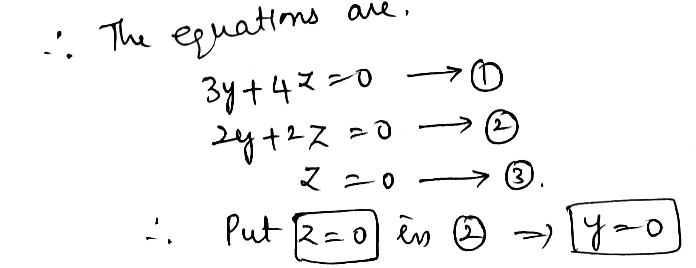 ∴ The equations are,
3y + 4z = 0 → ①
2y + 2z = 0 → ②
z = 0 → ③.
∴ Put z = 0 in ② ⇒ y = 0